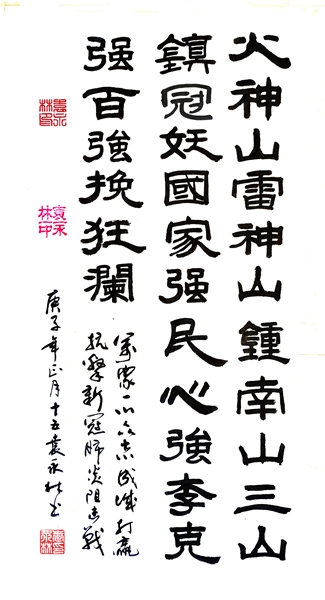 火神山雷神山鍾南山三山
鎮冠妖國家强民心強李克
强百強挽狂瀾
一心众志成城打赢
抗擊新冠肺炎阻击戰
庚子年正月十五袁永林书
袁永林印